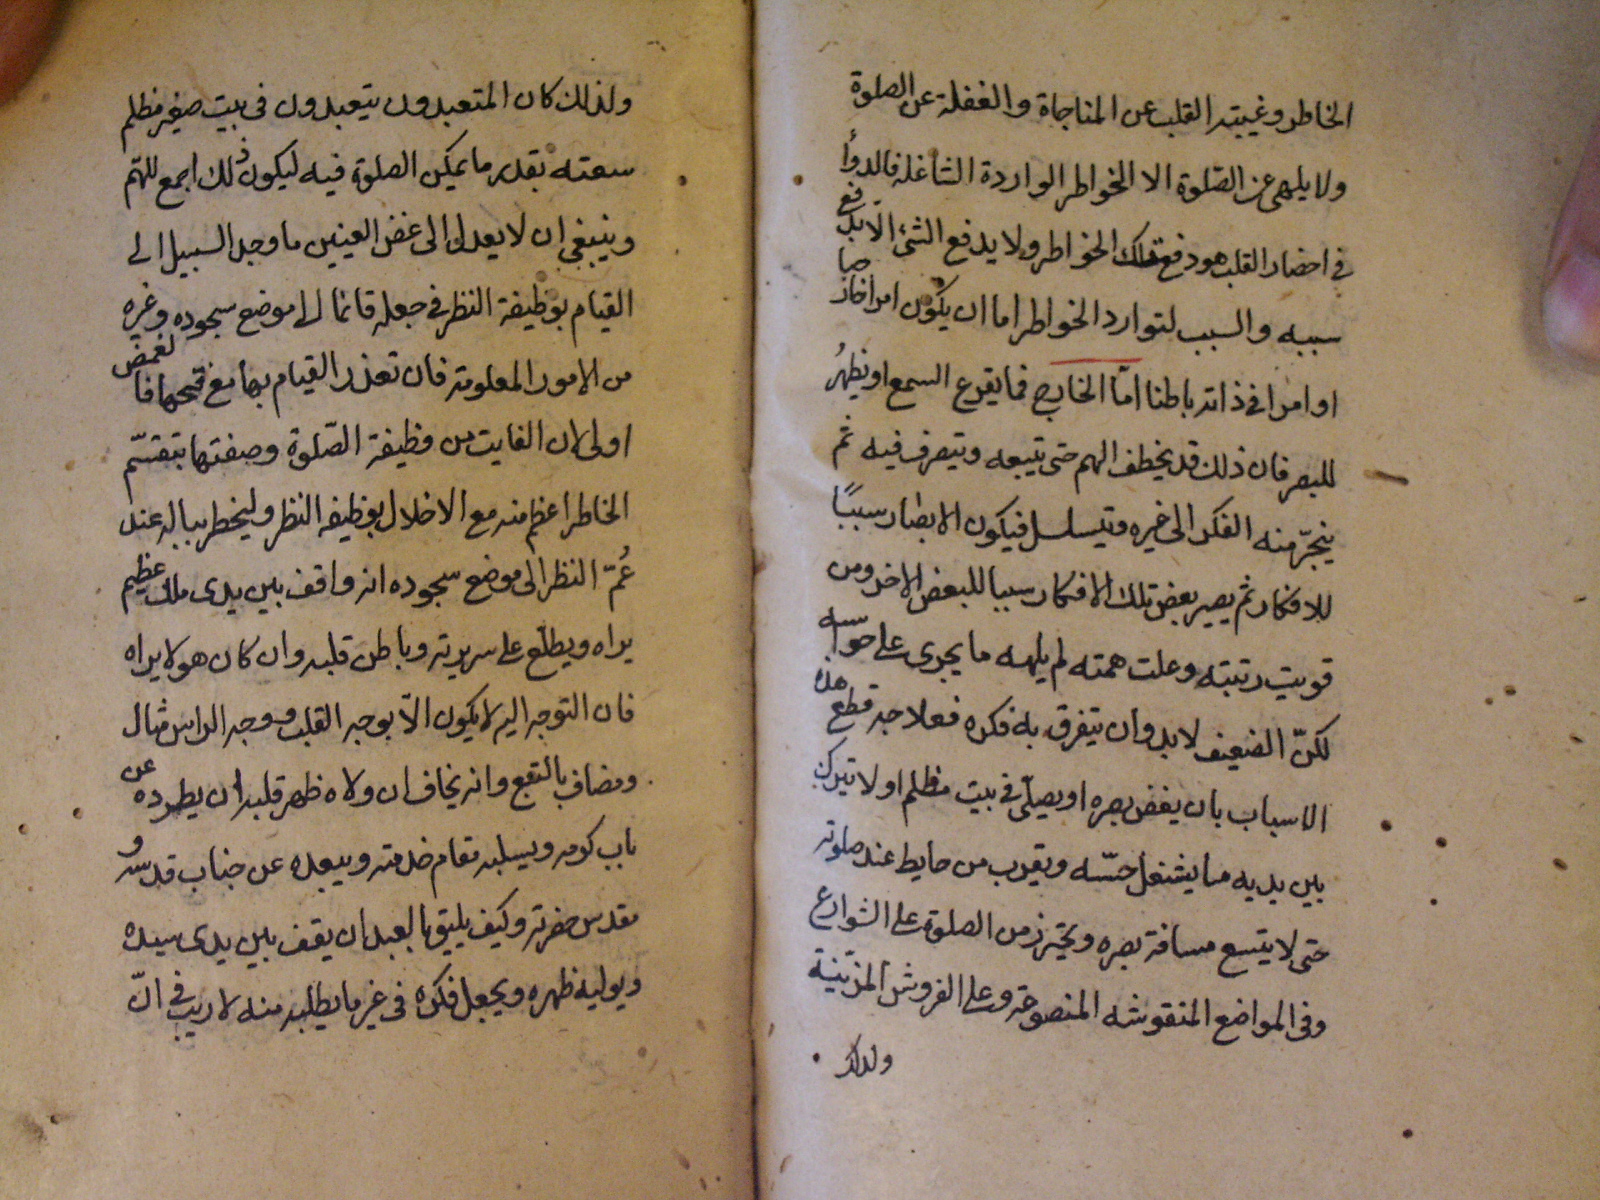 الخاطر وغيبته القلب عن المناجاة والغفلة عن الصلوة
ولا يلهى عن الصّلوة الا الخواطر الواردة الشاغلة فالدوأ
فى احضار القلب هو دفع تلك الخواطر ولا يدفع الشئ الا بدفع
سببه والسبب لتوارد الخواطر اما ان يكون امرا خارجيا
او امرا فى ذاته باطنا امّا الخارج فما يقرع السمع او يظهر
للبصر فان ذلك قد يخطف الهم حتى يتبعه ويتصرف فيه ثم
ينجرّ منه الفكر الى غيره ويتسلسل فيكون الابصار سببًا
للافكار ثم يصير بعض تلك الافكار سببا للبعض الاخر ومن
قويت رتبته وعلت همته لم يلهه ما يجرى على حواسه
لكنّ الضعيف لابد وان يتفرق به فكره فعلاجه قطع هذه
الاسباب بان يغض بصره او يصلّى فى بيت مظلم او لا يترك
بين يديه ما يشتغل حسّه ويقرب من حايط عند صلوته
حتى لا يتسع مسافة بصره ويحترز من الصلوة على الشوارع
وفى المواضع المنقوشه المنصوعة وعلى الفروش المزيّنة
ولذلك
ولذلك كان المتعبدون يتعبدون فى بيت صغير مظلم
سعته بقدر ما يمكن الصلوة فيه ليكون ذلك اجمع للهّم
وينبغى ان لا يعدل الى غض العينين ما وجد السبيل الى
القيام بوظيفة النظر فى جعله قائما الى موضع سجوده وغيره
من الامور المعلومة فان تعذر القيام بها مع فتحهما فالغمض
اولى لان الفايت من وظيفة الصّلوة وصفتها بتقسّم
الخاطر اعظم منه مع الاخلال بوظيفه النظر وليخطر بباله عند
النظر الى موضع سجوده انه واقف بين يدى ملك عظيم
يراه ويطلّع على سريرته وباطن قلبه وان كان هو لا يراه
فان التوجه اليه لا يكون الّا بوجه القلب ووجه الراس مثال
ومضاف بالتبع وانه يخاف ان ولاه ظهر قلبه ان يطرده عن
باب كرمه ويسلبه مقام خدمته ويبعده عن جناب قدسه و
مقدس حضرته وكيف يليق بالعبد ان يقف بين يدى سيده
ويوليه ظهره ويجعل فكره فى غير ما يطلبه منه لا ريب فى انّ